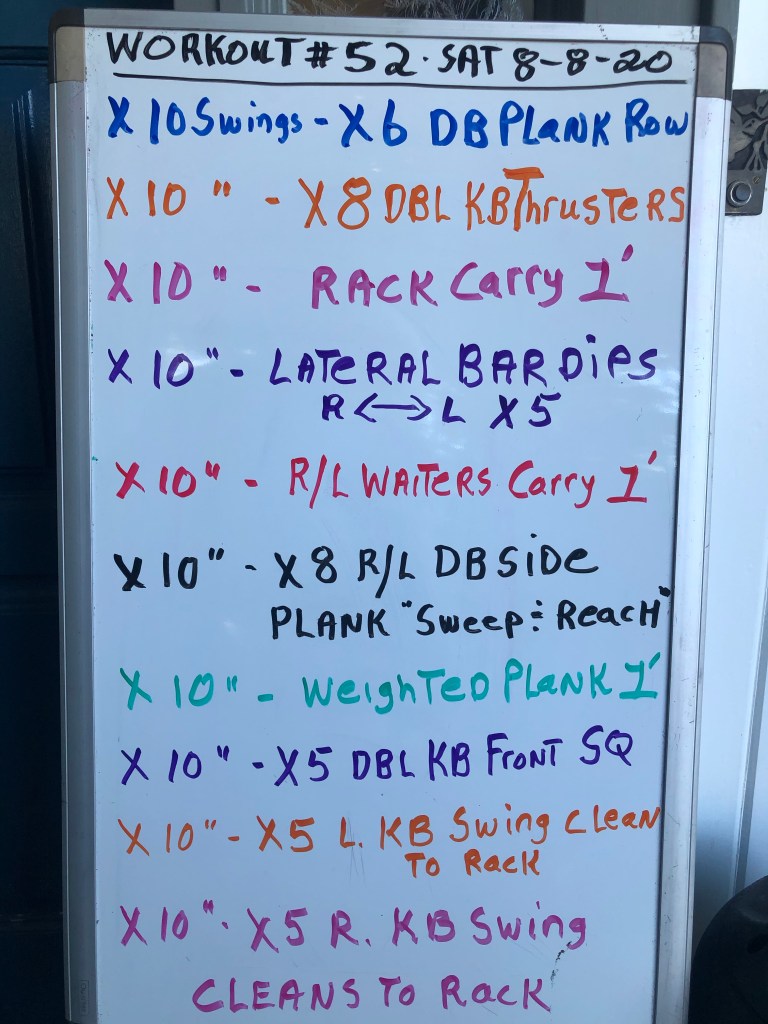 WORKOUT #52. SAT 8-8-20
X 10 Swings - X6 DB PLANK Row
X 10 " - X8 DBL KB ThrusTERS
X 10 " - RACK Carry 1'
X 10 " - LATERAL BAR DiPS
R <—> L X5
X 10 " - R/L WAiTERS Carry 1'
X 10 " - X8 R/L DB SiDE
PLANK "Sweep & ReacH"
X 10 " - WeigHTED PLANK 1'
X 10 " - X5 DBL KB FronT SQ
X 10 " - X5 L. KB Swing CLean
To Rack
X 10 " - X5 R. KB Swing
CLEANS To Rack